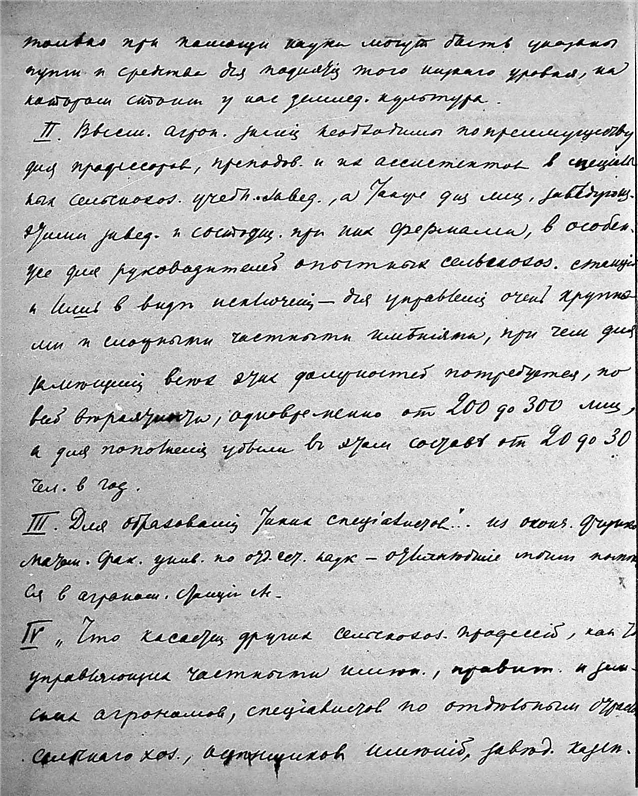 только при помощи науки могут быть указаны
пути и средства для поднятія того низкаго уровня, на
котором стоит у нас землед. культура.
II. Высш. агрон. знанія необходимы по преимуществу
для профессоров, препод. и их ассистентов в спеціаль
ных сельскохоз. учебн. завед., а также для лиц, завѣдующ.
этими завед. и состоящ. при них фермами, в особен.
же для руководителей опытных сельскохоз. станцій
и лишь в видѣ исключенія – для управленія очень крупны
ми и сложными частными имѣніями, при чем для
замѣщенія всѣх этих должностей потребуется, по
всей вѣроятности, одновременно от 200 до 300 лиц,
а для пополненія убыли в этом составѣ от 20 до 30
чел. в год.
III. Для образованія таких спеціалистов".. из оконч. физико
матем. фак. унив. по отд. ест. наук –
ся в агроном.
IV „Что касается других сельскохоз. профессій, как то
управляющих частными имѣн., правит. и зем-
ских агрономов, спеціалистов по отдѣльным отрасл
сельскаго хоз., оцѣнщиков имѣній, завѣд. казен.